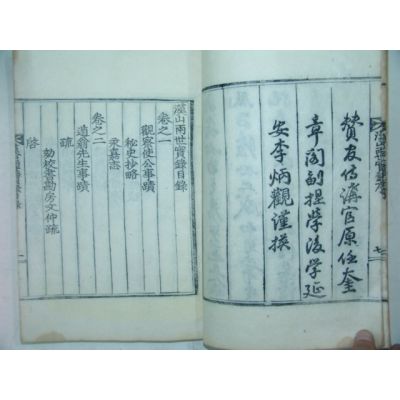 贊友侍講官原任奎
章閣副提學後學延
安李炳觀謹撰
七
山兩世實錄目錄
卷之一
觀察使公事蹟
秘史抄略
嘉志
卷之二
翁先生事蹟
疏
劾校書勘房文仲疏
啓
一